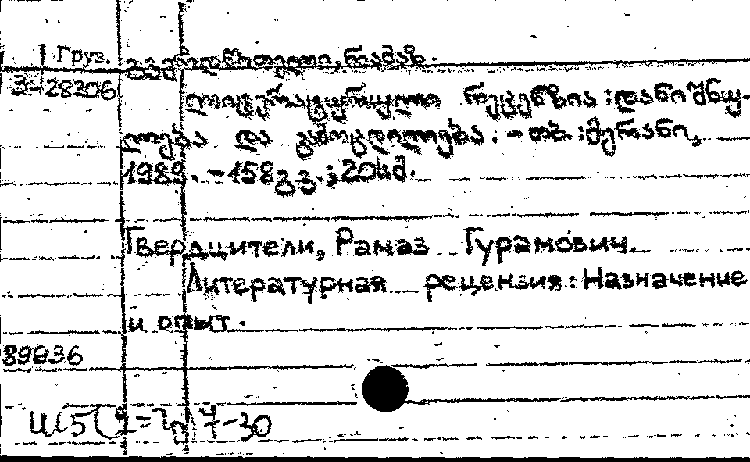 Груз. გვერდწითელი, რამაზ.
3-28206
ლიტერატურული რეცენზია : დანიშნუ-
ლება და გამოცდილება. - თბ. : მერანი,
1989. - 158 გვ. ; 20 სმ.
Гвердцители, Рамаз Гурамович.
Литературная рецензия : Назначение
и опыт.
89936